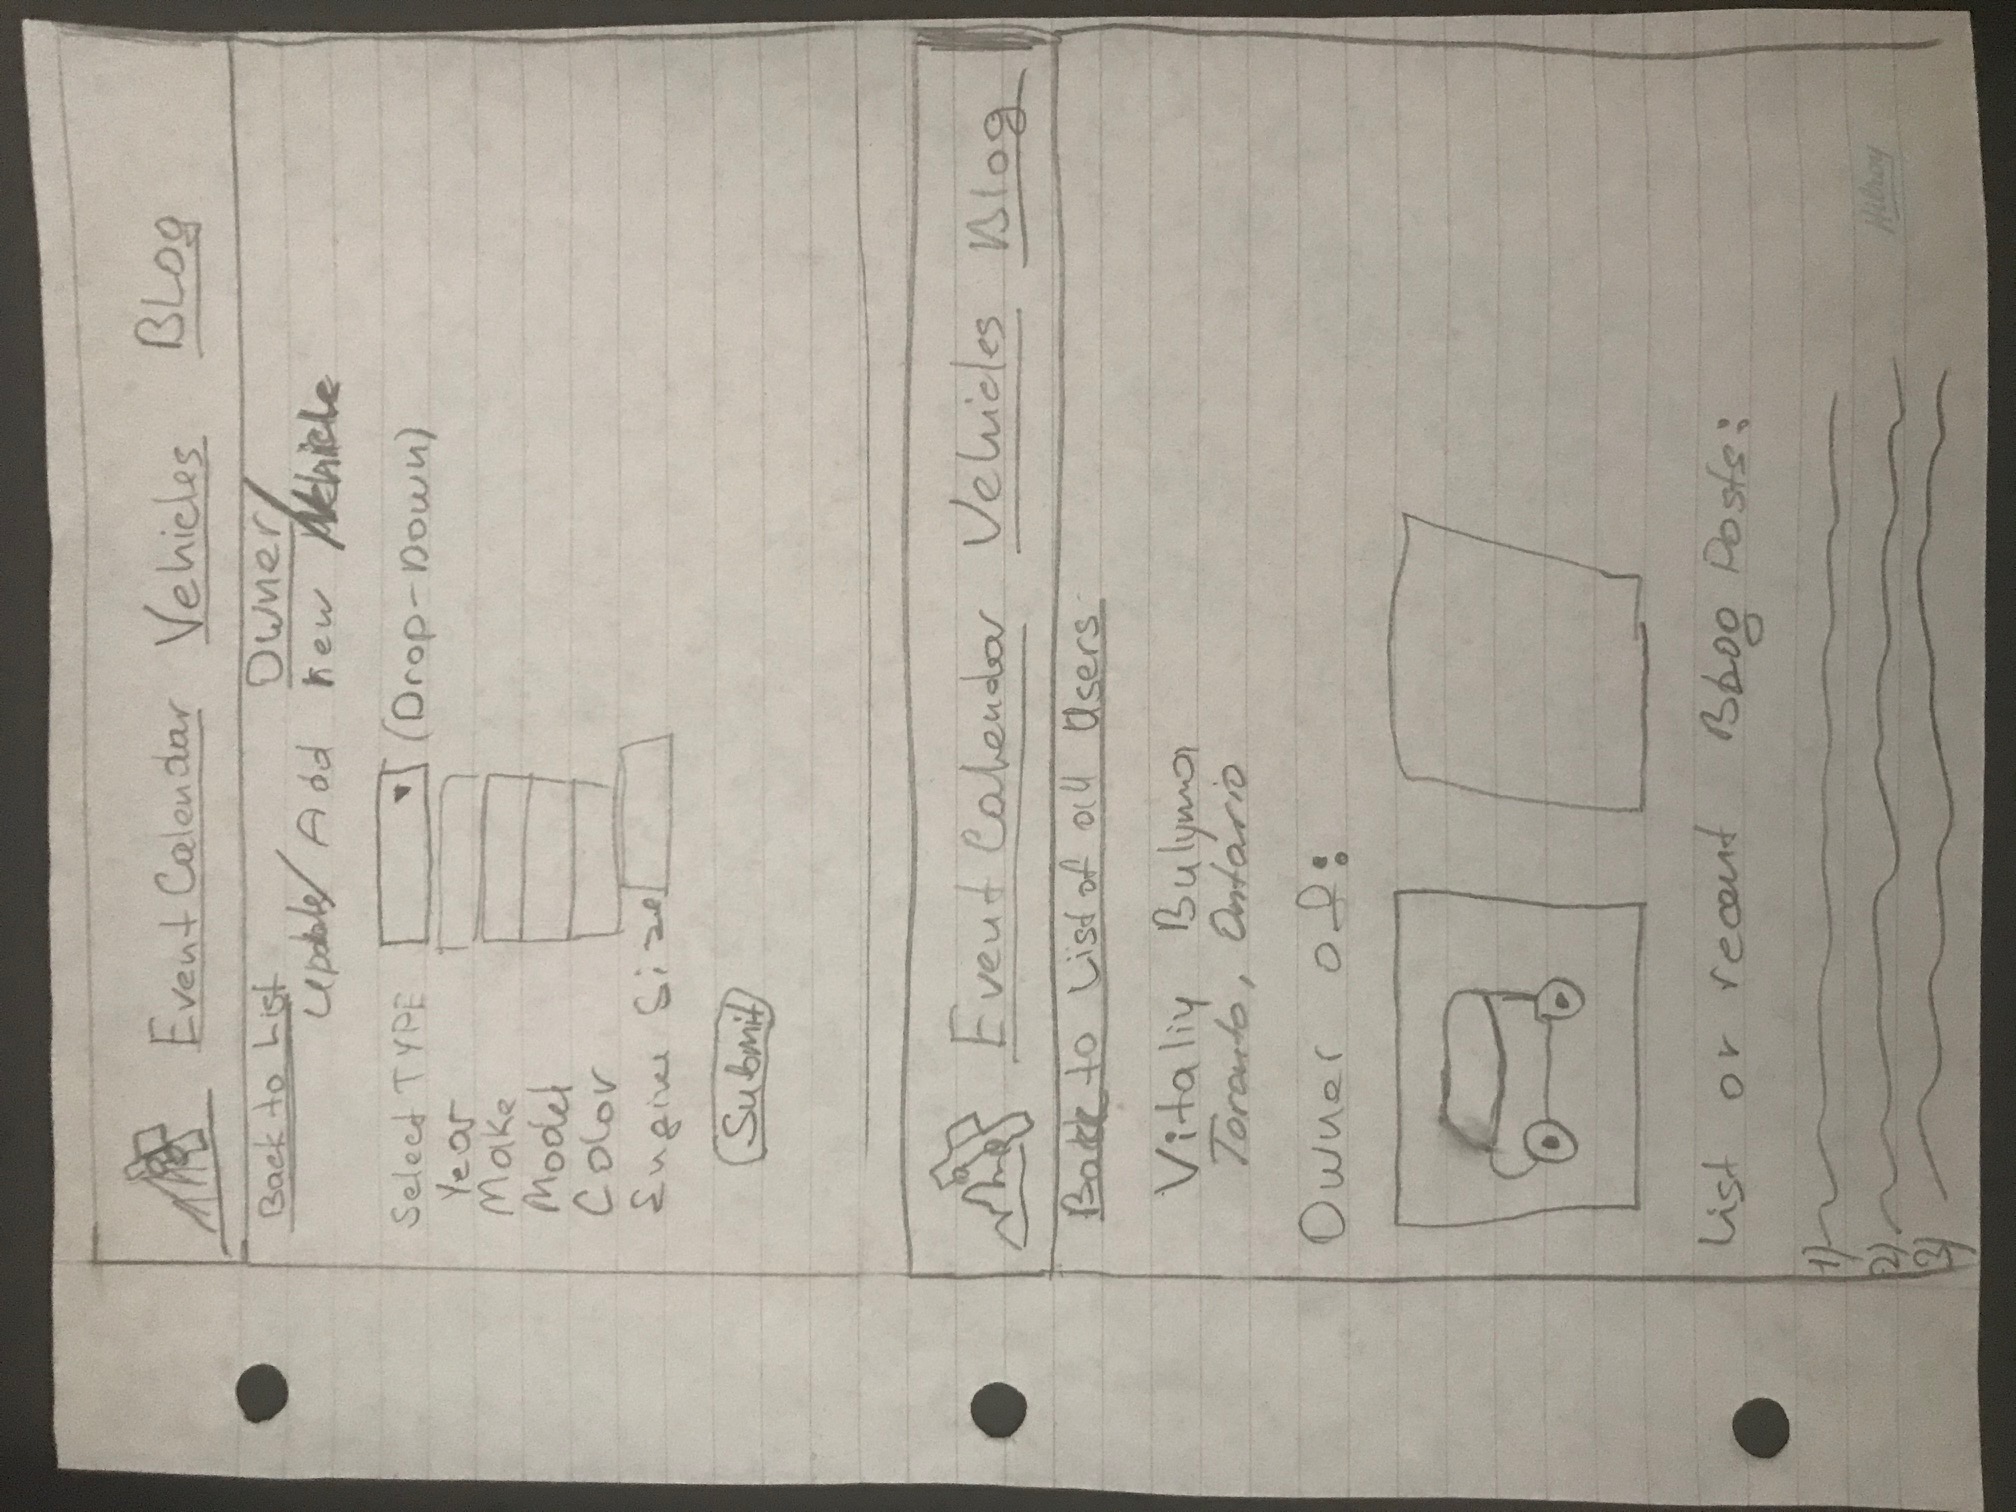 Event Calendar Vehicles BLog
Back to List
Owner/
Update/ Add new Vehicle
Select TYPE (Drop-Down)
Year
Make
Model
Color
Engine Size
Submit
Event Calendar Vehicles Blog
Back to List of all Users
Vitaliy Bulyma
Toronto, Ontario
Owner of:
List or recent Blog Posts:
1)
2)
3)
Hilroy